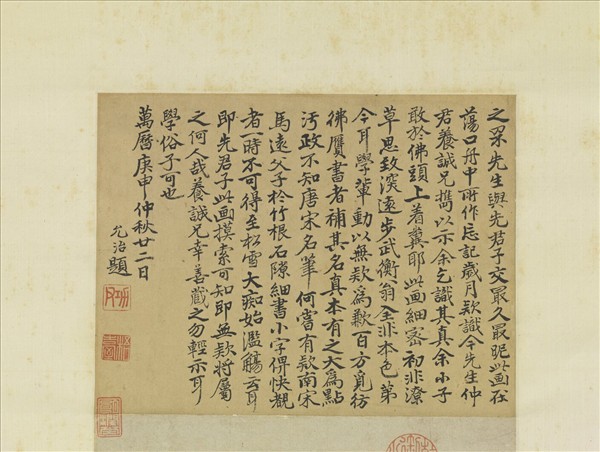 之罘先生與先君子交最久最昵此画在
蕩口舟中所作忘記歲月款識今先生仲
君養誠兄攜以示余乞識其真余小子
敢於佛頭上着糞耶此画細密初非潦
草思致深遠步武衡翁全非本色第
今耳學輩動以無款為歉百方覓彷
彿贗書者補其名真本有之大為點
汚政不知唐宋名筆何嘗有款南宋
馬遠父子於竹根石隙細書小字俾快覩
者一時不可得至松雪大痴始濫觴云耳
即先君子此画摸索可知即無款將屬
之何人哉養誠兄幸善藏之勿輕示耳
學俗子可也
萬曆庚申仲秋廿二日
允治題